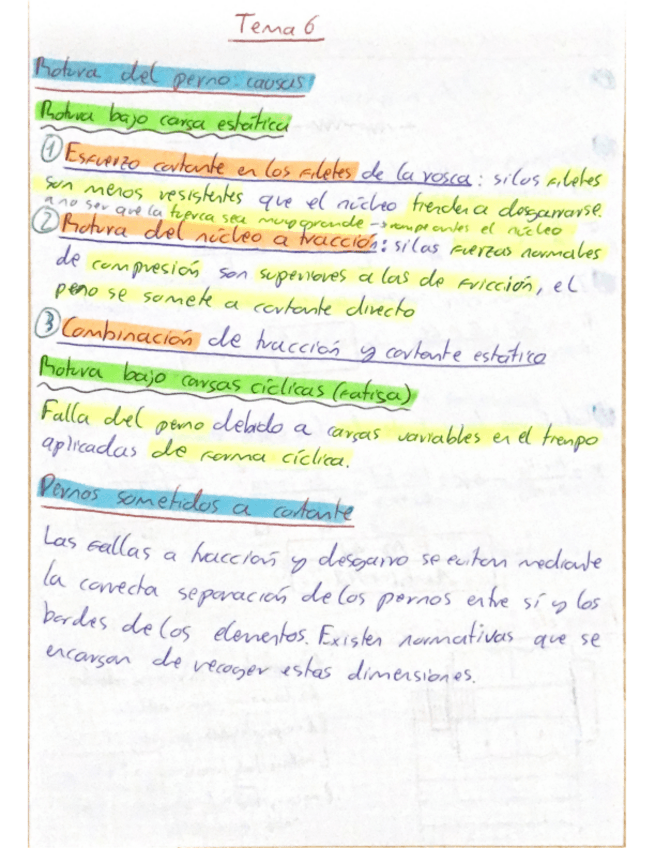 Tema 6
Rotura del perno: causas
Rotura bajo carga estática
① Esfuerzo cortante en los filetes de la rosca: si los filetes
son menos resistentes que el núcleo tienden a desgarrarse.
a no ser que la tuerca sea muy grande → rompe antes el núcleo
② Rotura del núcleo a tracción: si las fuerzas normales
de compresión son superiores a las de fricción, el
perno se somete a cortante directo
③ Combinación de tracción y cortante estático
Rotura bajo cargas cíclicas (fatiga)
Falla del perno debido a cargas variables en el tiempo
aplicadas de forma cíclica.
Pernos sometidos a cortante
Las fallas a tracción y desgarro se evitan mediante
la correcta separación de los pernos entre sí y los
bordes de los elementos. Existen normativas que se
encargan de recoger estas dimensiones.